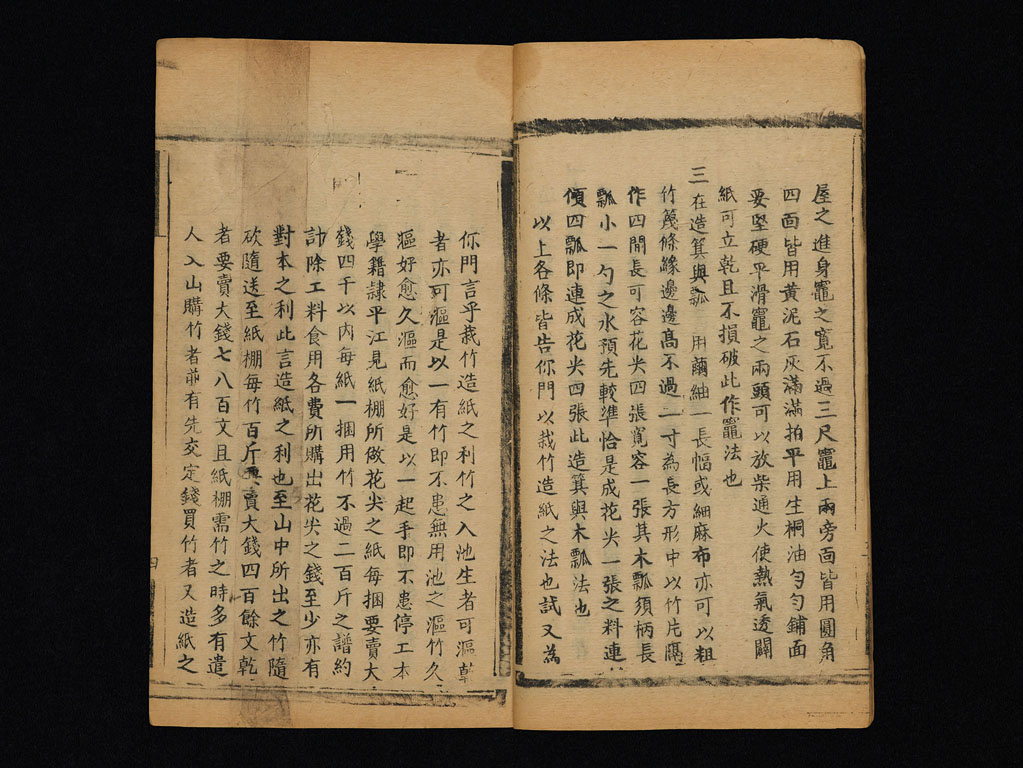 屋之進身竈之寬不過三尺竈上兩旁面皆用圓角
四面皆用黃泥石灰滿滿拍平用生桐油勻勻鋪面
要堅硬平滑竈之兩頭可以放柴通火使熱氣透關
紙可立乾且不損破此作竈法也
三 在造箕與瓢 用繭紬一長幅或細麻布亦可以粗
竹篾條緣邊邊高不過一寸為長方形中以竹片隔
作四間長可容花尖四張寬容一張其木瓢須柄長
瓢小一勺之水預先較準恰是成花尖一張之料連
傾四瓢即連成花尖四張此造箕與木瓢法也
以上各條皆告你門以栽竹造紙之法也試又為
你門言乎栽竹造紙之利竹之入池生者可漚乾
者亦可漚是以一有竹即不患無用池之漚竹久
漚好愈久漚而愈好是以一起手即不患停工本
學籍隸平江見紙棚所做花尖之紙每捆要賣大
錢四千以內每紙一捆用竹不過二百斤之譜約
計除工料食用各費所購出花尖之錢至少亦有
對本之利此言造紙之利也至山中所出之竹隨
砍隨送至紙棚每竹百斤要賣大錢四百餘文乾
者要賣大錢七八百文且紙棚需竹之時多有遣
人入山購竹者並有先交定錢買竹者又造紙之